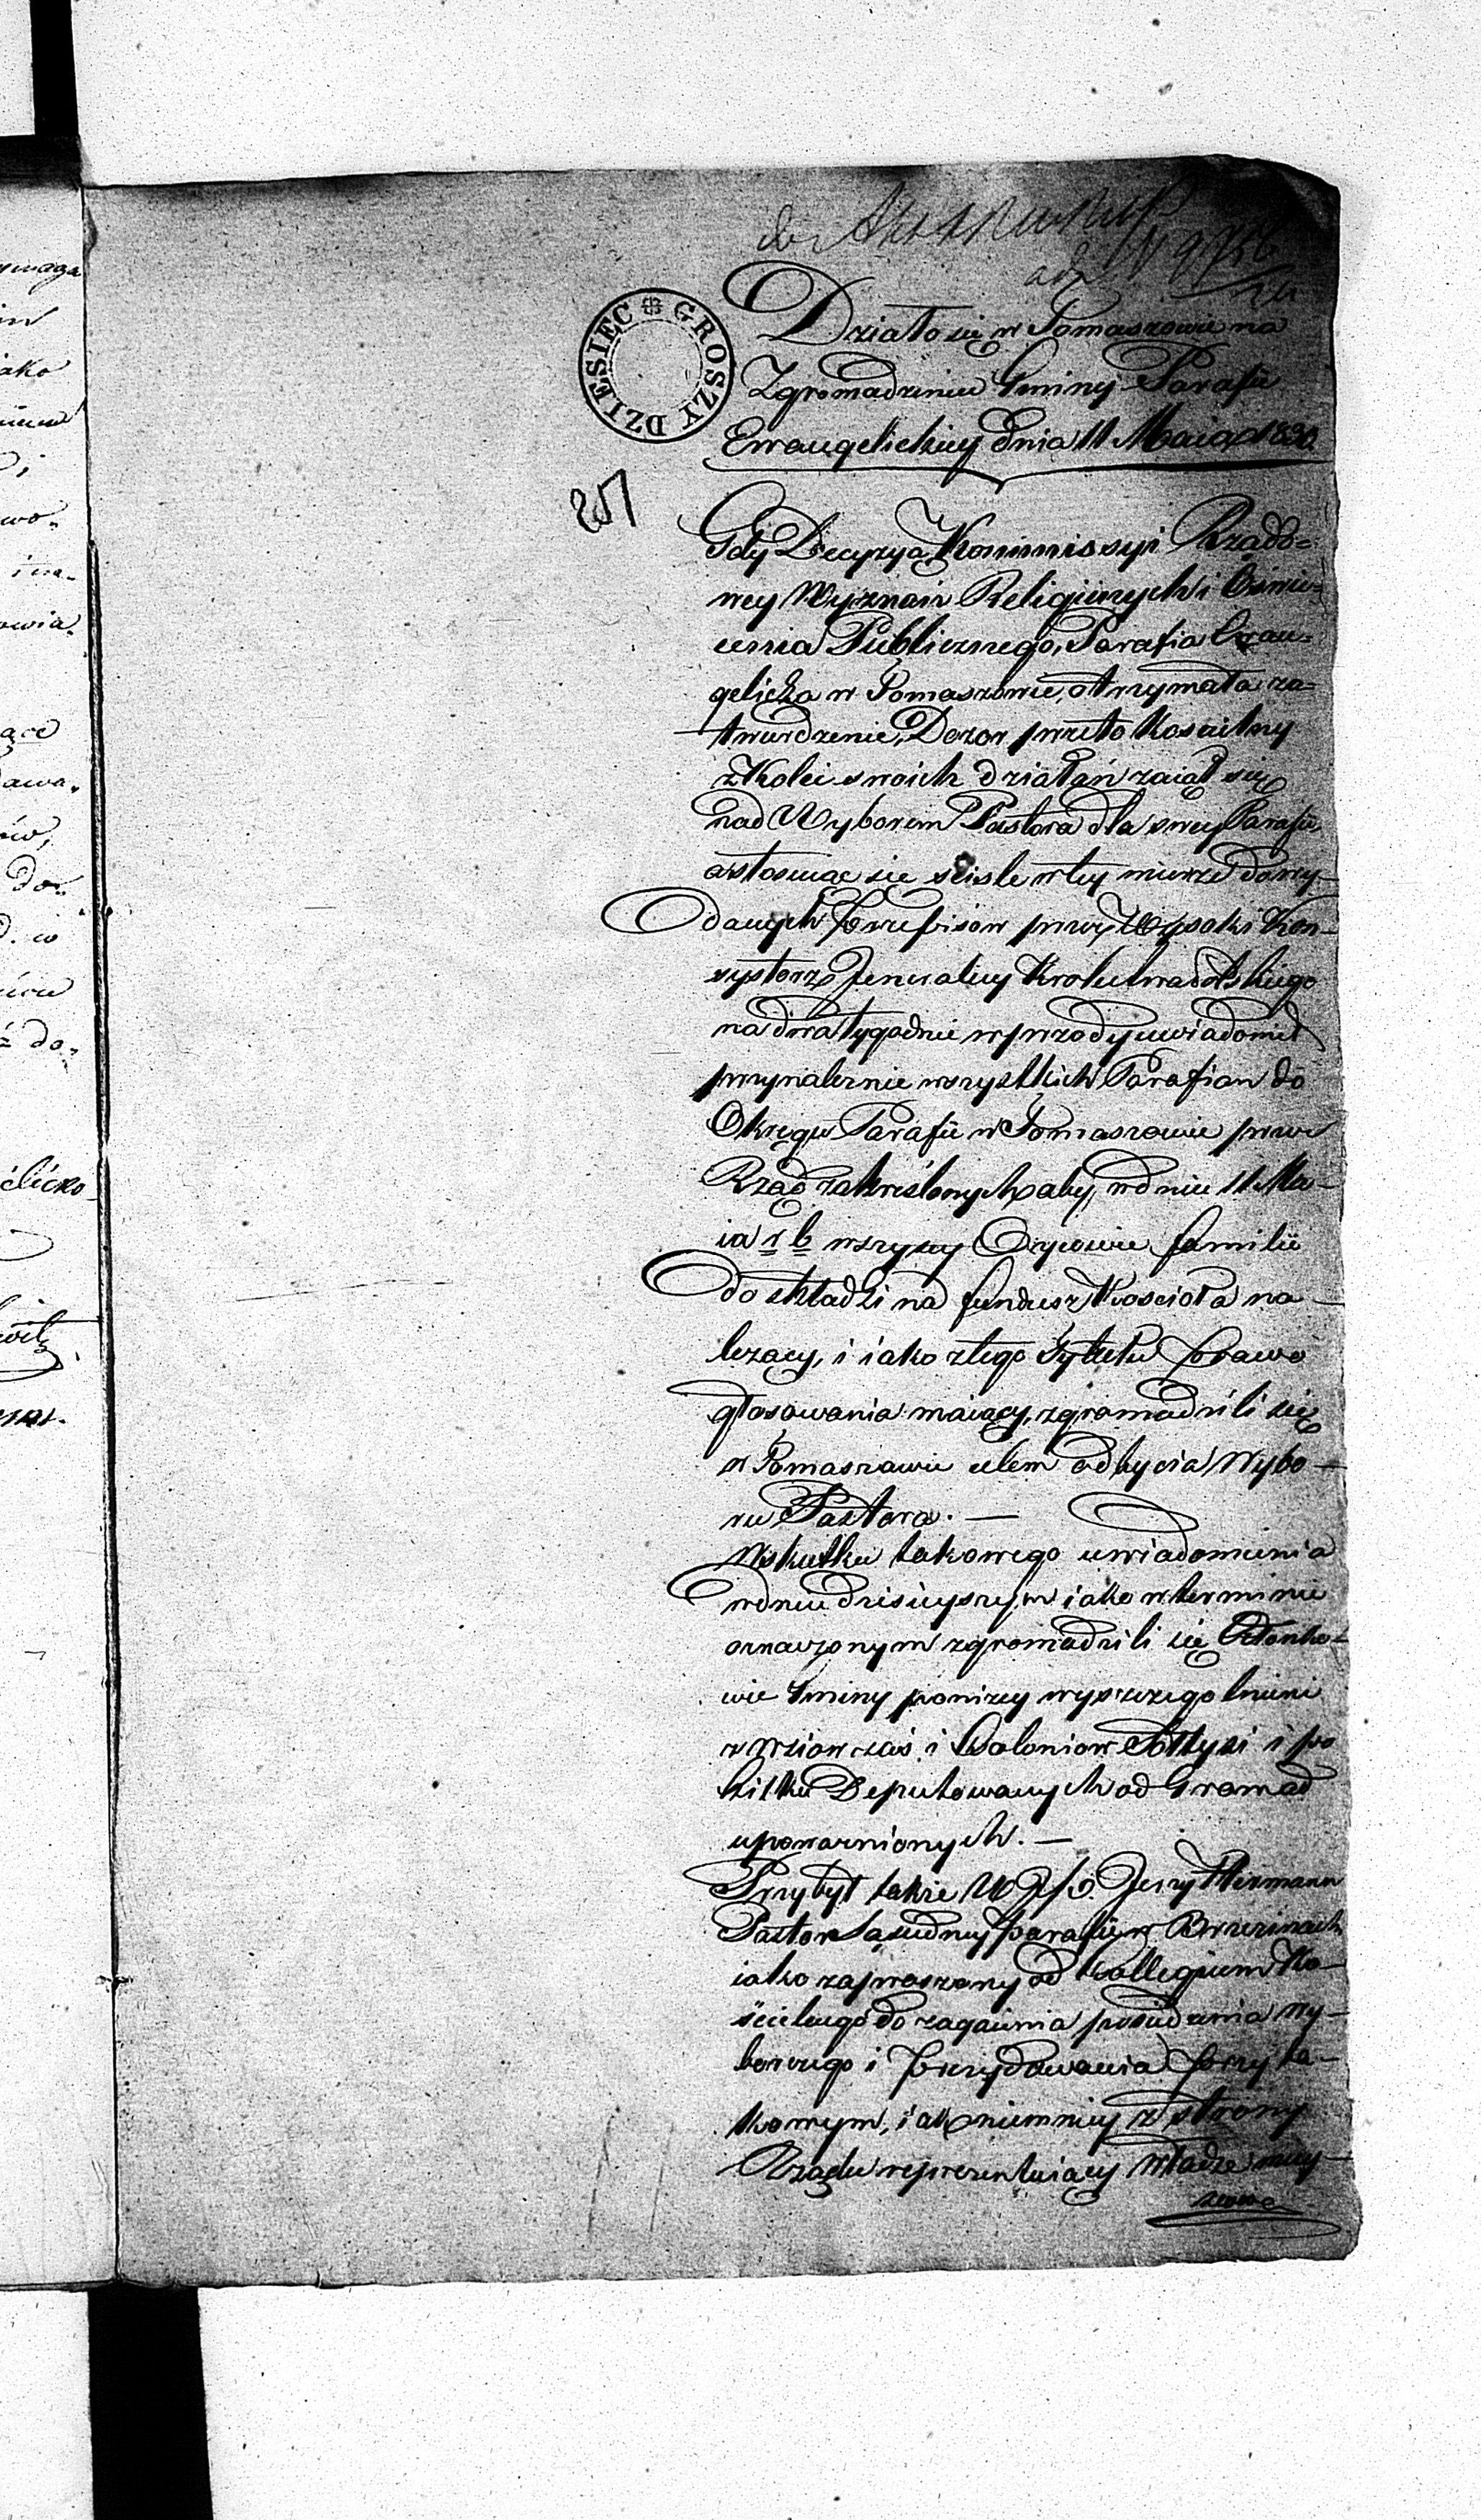 ad N 9756
DZIESIEC GROSZY
Działo się w Tomaszowie na
Zgromadzeniu Gminy Parafii
Ewangelickiey dnia 11 Maia 1830
Gdy Decyzyą Kommissyi Rządo=
wey Wyznań Religiinych i Oświe=
cenia Publicznego, Parafia Ewan=
gelicka w Tomaszowie, otrzymała za=
twierdzenie, Dozor przeto Koscielny
z Kolei swoich działań zaiął się
nad Wyborem Pastora dla swey Parafii,
a stosuiąc się sciśle w tey mierze do wy-
danych przepisów przez Wysoki Kon-
systorz Jeneralny Krolestwa Polskiego
na dwa tygodnie wprzody uwiadomił
przynależnie wszystkich Parafian do
Okręgu Parafii w Tomaszowie przez
Rząd zakreślonych, aby w dniu 11 Ma-
ia r b wszyscy Oycowie familii
do składki na fundusz Kościoła na-
leżący, i iako z tego tytułu prawo
głosowania maiący, zgromadzili się
w Tomaszowie celem odbycia Wybo-
ru Pastora. —
W skutku takowego uwiadomienia
w dniu dzisieyszym iako w terminie
oznaczonym zgromadzili się Członko-
wie Gminy poniżey wyszczegolnieni
z wsiow zaś i Koloniow Sołtysi i po
kilku Deputowanych od Gromad
upoważnionych. —
Przybył także W Jerzy Hermann
Pastor Sąsiedniey parafii w Brzezinach
iako zaproszony od Kollegium Ko-
ścielnego do zagaienia posiedzenia wy-
borczego i prezydowania przy ta-
kowym, iak niemniey z strony
Rządu reprezentuiący Władze miey-
scowe